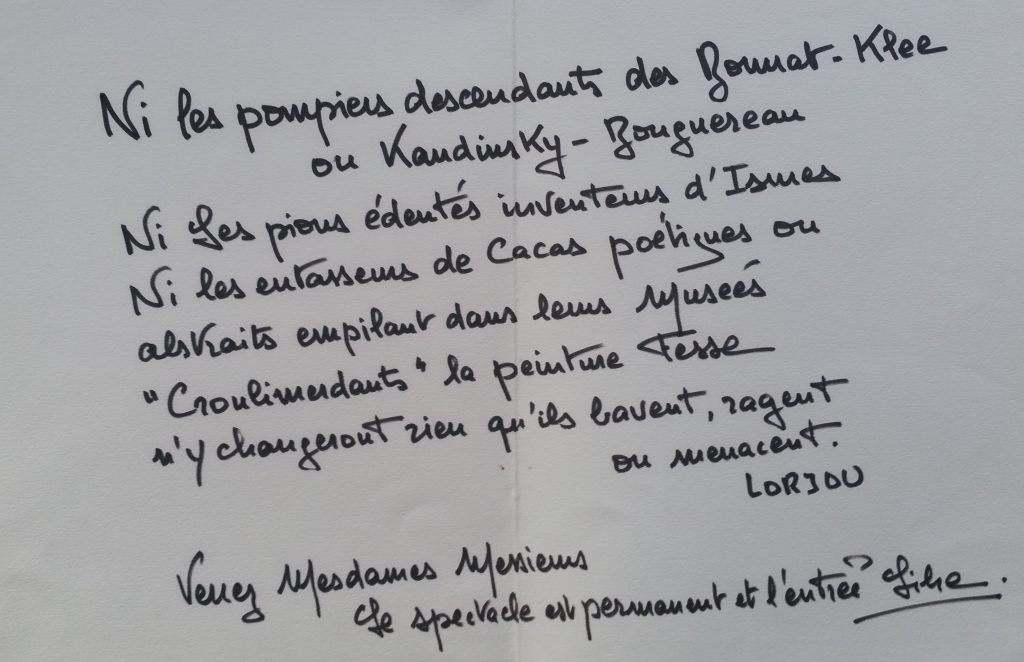 Ni les pompiers descendants des Bonnat-Klee
ou Kandinsky-Bouguereau
Ni Les pions édentés inventeurs d'Ismes
Ni les entasseurs de Cacas poétiques ou
abstraits empilant dans leurs Museés
"Croulimerdants" la peinture Fesse
n'y changeront rien qu'ils bavent, ragent
ou menacent.
LORJOU
Venez Mesdames Messieurs
Le spectacle est permanent et l'entrée Libre.